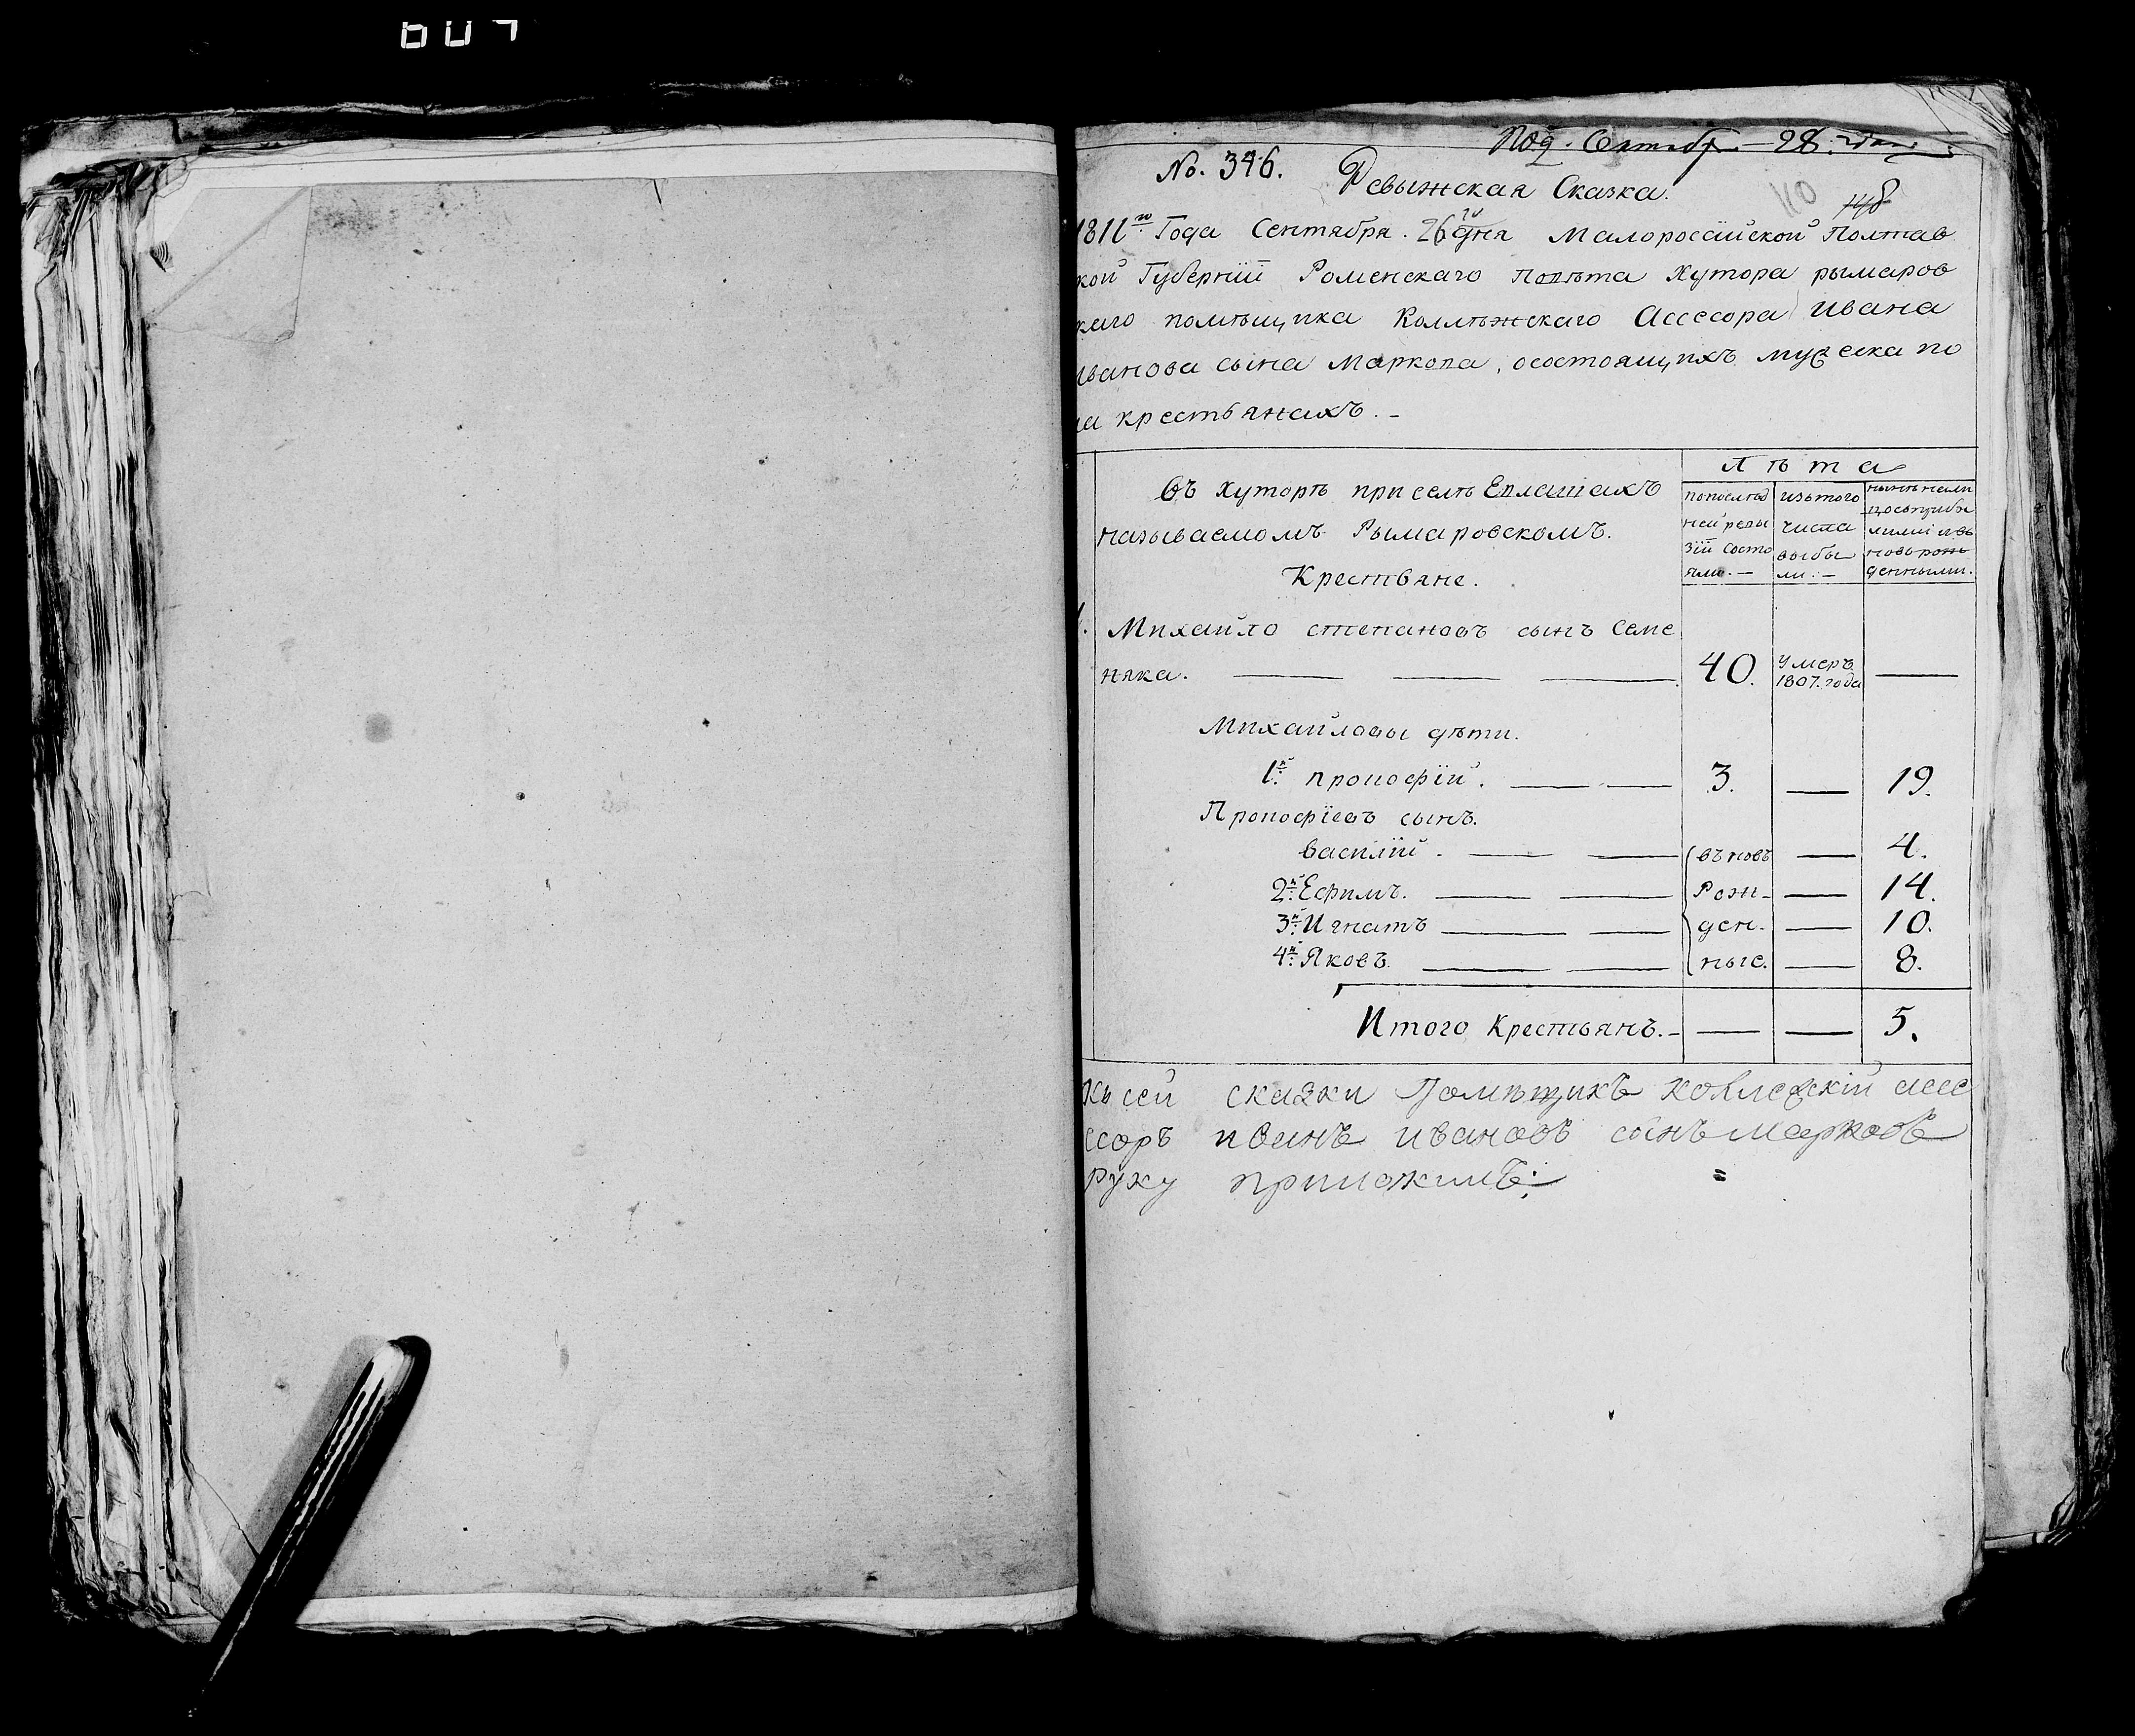 Под. Октябр. 28. дня
No. 346.
Ревыжская Сказка.
110
1811го Года Сентября. 26го дня Малороссїйской Полтав
кой Губернїй Роменскаго повѣта Хутора рымаров
каго помѣщика Коллѣжскаго Ассесора Ивана
Иванова сына Маркова, осостоящихъ мужеска по
ла крестьянахъ. -
Въ хуторѣ при селѣ Евлашахъ
называемомъ Рымаровскомъ.
Крестьяне.
Лѣта
попослѣд
ней ревы
зїй состо
яли. -
изьтого
числа
выбы
ли: -
нынѣ нали
цо съприбы
лими изь
новь рож
денными.
1. Михайло степановъ сынъ Семе
няка. — — — 40. умеръ 1807. года —
Михайловы дѣти.
1й прокофїй. — — 3. — 19.
Прокофїевъ сынъ.
василїй. — — вь новь — 4.
2й Ефимъ. — — Рож- — 14.
3й Игнатъ — — ден- — 10.
4й Яковъ. — — ные. — 8.
Итого Крестьянъ. - — — 5.
Къ сей сказки Помѣщикъ колежскїй ассе
ссоръ иванъ ивановъ сынъ марковъ
руку приложилъ: